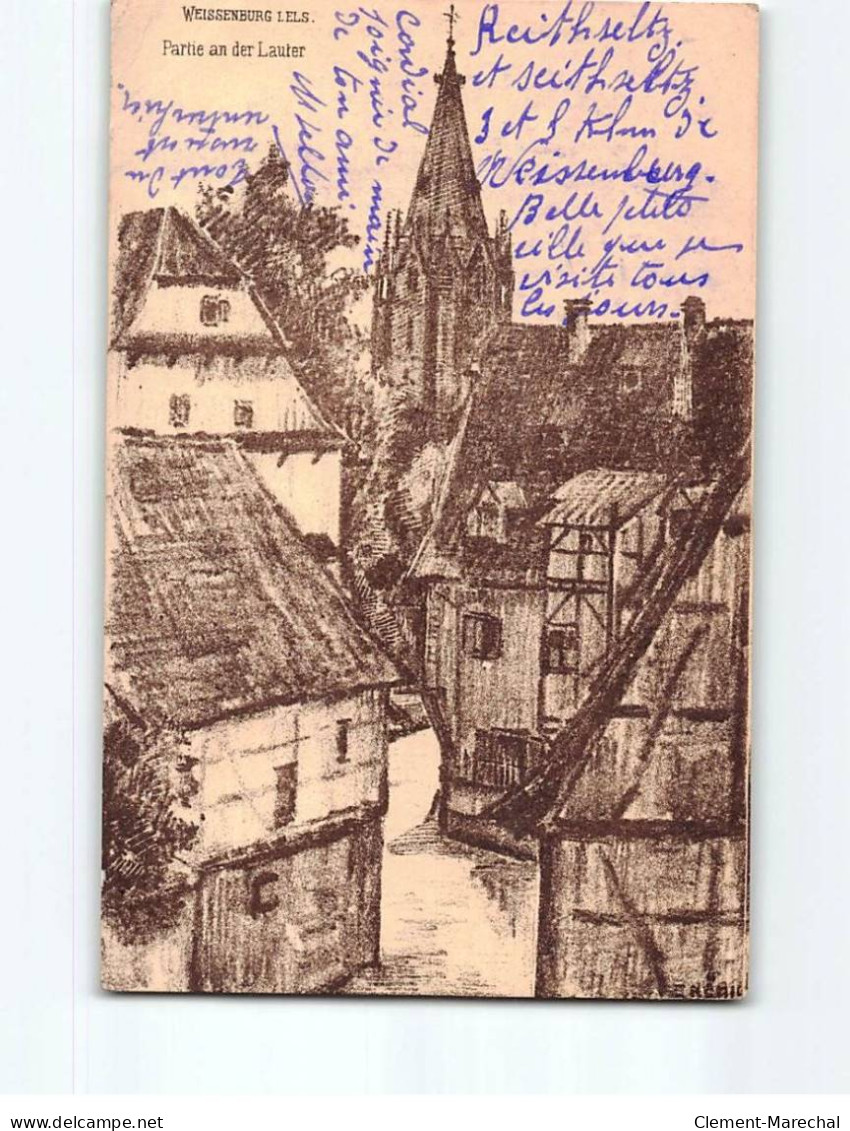 WEISSENBURG I.ELS.
Partie an der Lauter
Reithseltz
et seithseltz
3 et 8 Klm de
Weissenburg.
Belle petite
ville que je
visite tous
les jours.
Cordial
poignée de main
De ton ami
tout du
CLEMENT-MARECHAL
Clement-Marechal